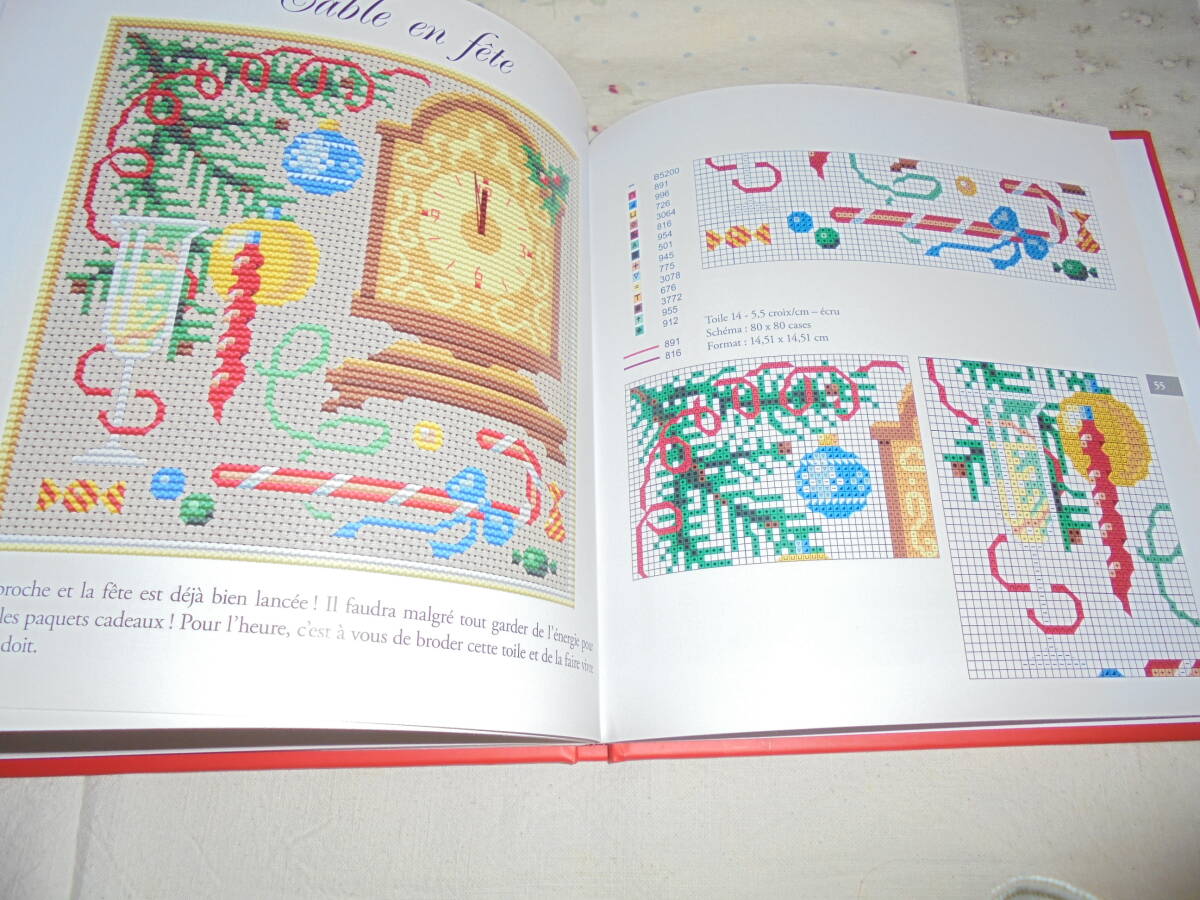 Table en fête
9
6
proche et la fête est déjà bien lancée ! Il faudra malgré tout garder de l'énergie pour
les paquets cadeaux ! Pour l'heure, c'est à vous de broder cette toile et de la faire vivre
doit.
B5200
891
996
726
3064
816
954
501
945
775
3078
676
3772
955
912
891
816
Toile 14 - 5,5 croix/cm – écru
Schéma : 80 x 80 cases
Format : 14,51 x 14,51 cm
55